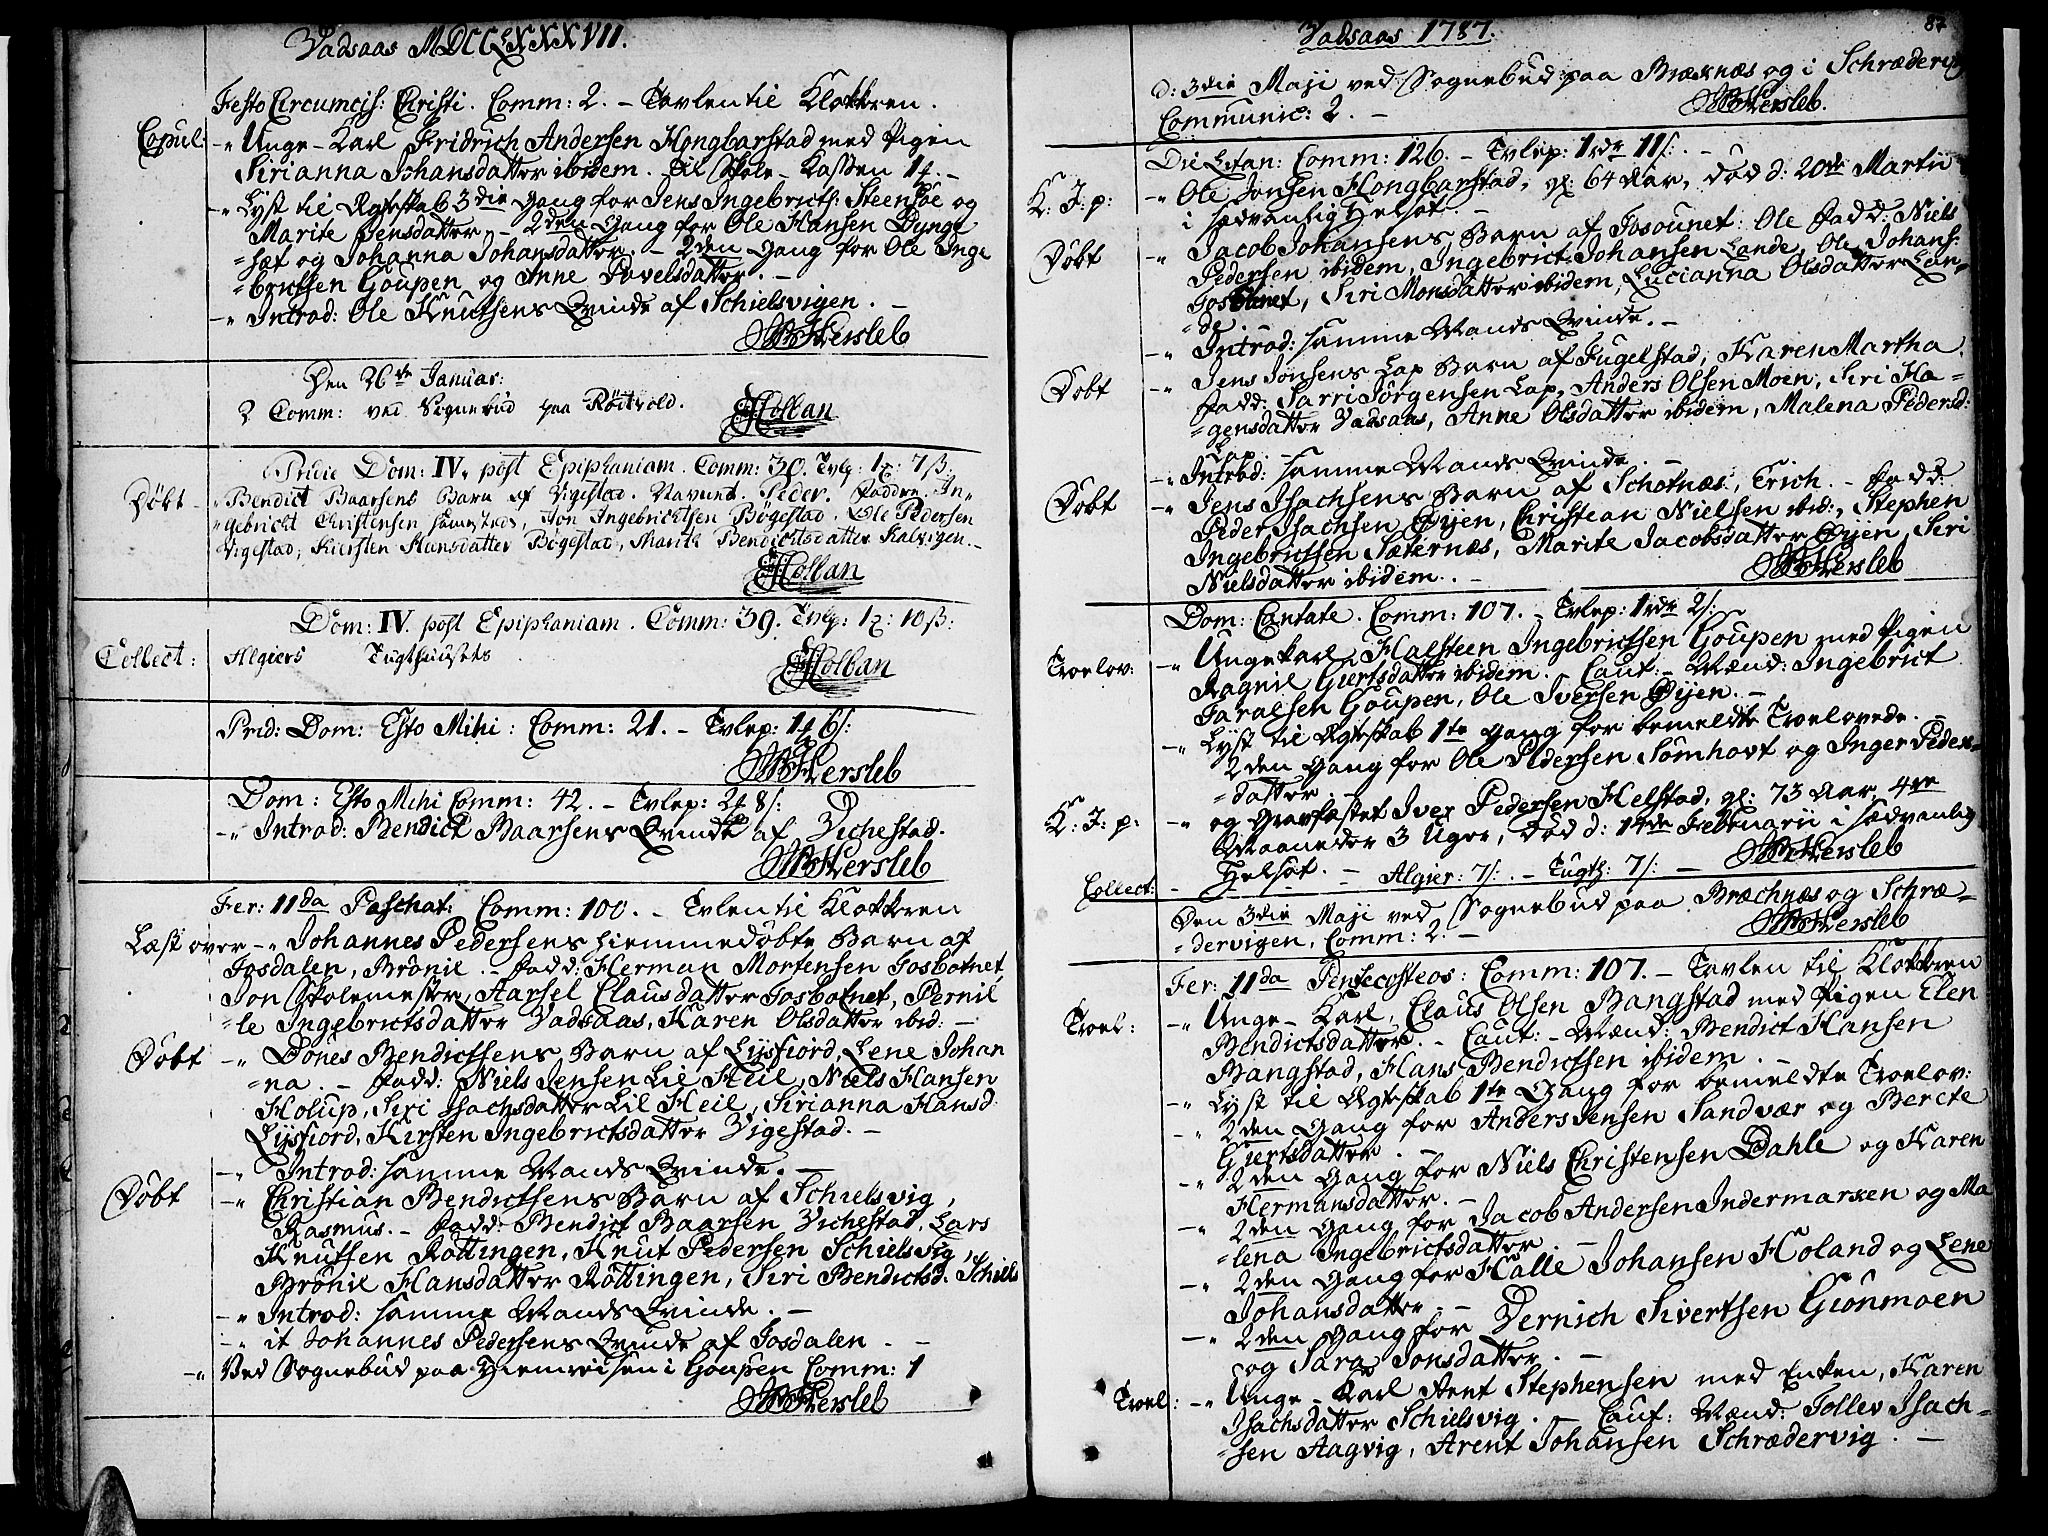 Vadsaas MDCCLXXXVII.
Festo Circumcis: Christi. Comm: 2. - Tavlen til Klokkeren.
Copul: -" Unge-Karl Fridrich Andersen Hongbarstad med Pigen
Sirianna Johansdatter ibidem. Til Skole-Kassen
-" Lyst til Ægteskab 3die Gang for Jens Ingebricts: Steensøe og
Marite Jensdatter, - 2den Gang for Ole Hansen Dynge
=sæt og Johanna Johansdatter. - 2den Gang for Ole Inge
=brictsen Goupen og Anne Povelsdatter. -
-" Introd: Ole Knutsens Qvinde af Schielsvigen. -
Hersleb
Den 26de Januar:
2 Comm: ved Sognebud paa Röitvold.
Holban
Pridie Dom: IV. post Epiphaniam. Comm: 30. Tvlp:
Døbt - Bendict Baarsens Barn af Vigestad. Peder. Faddre. In=
=gebricht Christensen samesteds, Jon Ingebrichtsen Bögestad. Ole Pedersen
Vigestad, Kiersten Bögestad, Marit Bendichtsdatter Kalvigen. -
Holban
Dom: IV. post Epiphaniam. Comm: 39. Tvlp:
Collect: Algiers Tugthusets
Holban
Prid: Dom: Esto Mihi: Comm: 21. - Tvlep:
Hersleb
Dom: Esto Mihi Comm: 42. - Tvlep:
-" Introd: Bendict Baarsens Qvinde af Vichestad.
Hersleb
Fer: 11da Paschat: Comm: 100. - Tvlen til Klokkeren
Læst over -" Johannes Pedersens hiemmedøbte Barn af
Josdalen, Brönil. - Fadd: Herman Mortensen Josbotnet,
Jon Skolemester, Aarsel Clausdatter Josbotnet, Pernil
=le Ingebrictsdatter Vadsaas, Karen Olsdatter ibid: -
Døbt -" Dönes Bendictsens Barn af Lysfiord, Lene Johan
=na. - Fadd: Niels Jensen Lil Heil, Niels Hansen
Holup, Siri Isachsdatter Lil Heil, Sirianna Hansd
Lysfiord, Kirsten Ingebrictsdatter Vigestad. -
-" Introd: samme Mands Qvinde. -
Døbt -" Christian Bendictsens Barn af Schielsvig,
Rasmus. - Fadd: Bendict Baarsen Vichestad, Lars
Knutsen Röttingen, Knut Pedersen Schielsvig,
Brönil Hansdatter Röttingen, Siri Bendictsd: Schiels
-" Introd: samme Mands Qvinde. -
-" it Johannes Pedersens Qvinde af Josdalen. -
-" Ved Sognebud paa Hiemreisen i Goupen Comm: 1
Hersleb
Vadsaas 1787.
87
d: 3die Maji ved Sognebud paa Bræknæs og i Schrædervig
Communic: 2. -
Hersleb.
Die Litan: Comm: 126. - Tvlep: 1rdr 11s:. -
K: J: p: -" Ole Jonsen Hongbarstad, gl: 64 Aar, död d: 20de Martii
i sædvanlig Helsot. -
Døbt -" Jacob Johansens Barn af Josbunet: Ole Fadd: Niels
Pedersen ibidem, Ingebrict Johansen Lande, Ole Johans:
Josbunet, Siri Monsdatter ibidem, Lucianna Olsdatter Lan=
=de.
-" Introd: samme Mands Qvinde. -
Døbt -" Jens Jonsens Lap Barn af Fugelstad, Karen Martha.
Fadd: Sarri Jörgensen Lap, Anders Olsen Moen, Siri Ha=
=gensdatter Vadsaas, Anne Olsdatter ibidem, Malena Pedersd:
Lap. -
-" Introd: samme Mands Qvinde -
Døbt -" Jens Isachsens Barn af Schotnæs, Erich. - Fadd:
Peder Isachsen Öijen, Christian Nielsen ibid:, Stephen
Ingebrictsen Sæternæs, Marite Jacobsdatter Öijen, Siri
Nielsdatter ibidem. -
Hersleb
Dom: Cantate. Comm: 107. - Tvlep: 1rdr 2s:
Troelov: -" Ungekarl Halsteen Ingebrictsen Goupen med Pigen
Ragnil Giertsdatter ibidem. Caut: - Mænd: Ingebrict
Jaralsen Goupen, Ole Iversen Öijen. -
-" Lyst til Ægteskab 1te Gang for bemeldte Troelovede. -
2den Gang for Ole Pedersen Sömhovt og Inger Peders=
=datter. -
K: J: p: -" og Gravfæstet Iver Pedersen Helstad, gl: 73 Aar 4re
Maaneder 3 Uger, död d: 14de Februarii i sædvanlig
Helsot. -
Hersleb
Collect: - Algier: 7s:. - Tugth: 7s: -
Den 3die Maji ved Sognebud paa Bræchnæs og Schræ=
=dervigen, Comm: 2. -
Hersleb
Fer: 11da Pentecosteos: Comm: 107. - Tavlen til Klokkeren
Troel: -" Unge-Karl, Claus Olsen Bangstad med Pigen Elen
Bendictsdatter. - Caut: - Mænd: Bendict Hansen
Bangstad, Hans Bendictsen ibidem. -
-" Lyst til Ægteskab 1te Gang for bemeldte Troelov:
-" 2den Gang for Anders Jensen Sandvær og Berete
Giertsdatter. -
-" 2den Gang for Niels Christensen Dahle og Karen
Hermansdatter. -
-" 2den Gang for Jacob Andersen Indermarken og Ma
=lena Ingebrictsdatter -
-" 2den Gang for Halle Johansen Holand og Lene
Johansdatter. -
-" 2den Gang for Dernich Sivertsen Giönmoen
og Sara Jonsdatter. -
Troel: -" Unge-Karl Arent Stephensen med Enken, Karen
Isachsdatter Schielsvig. - Caut: Mænd: Tollev Isach=
=sen Aagvig, Arent Johansen Schrædervig. -